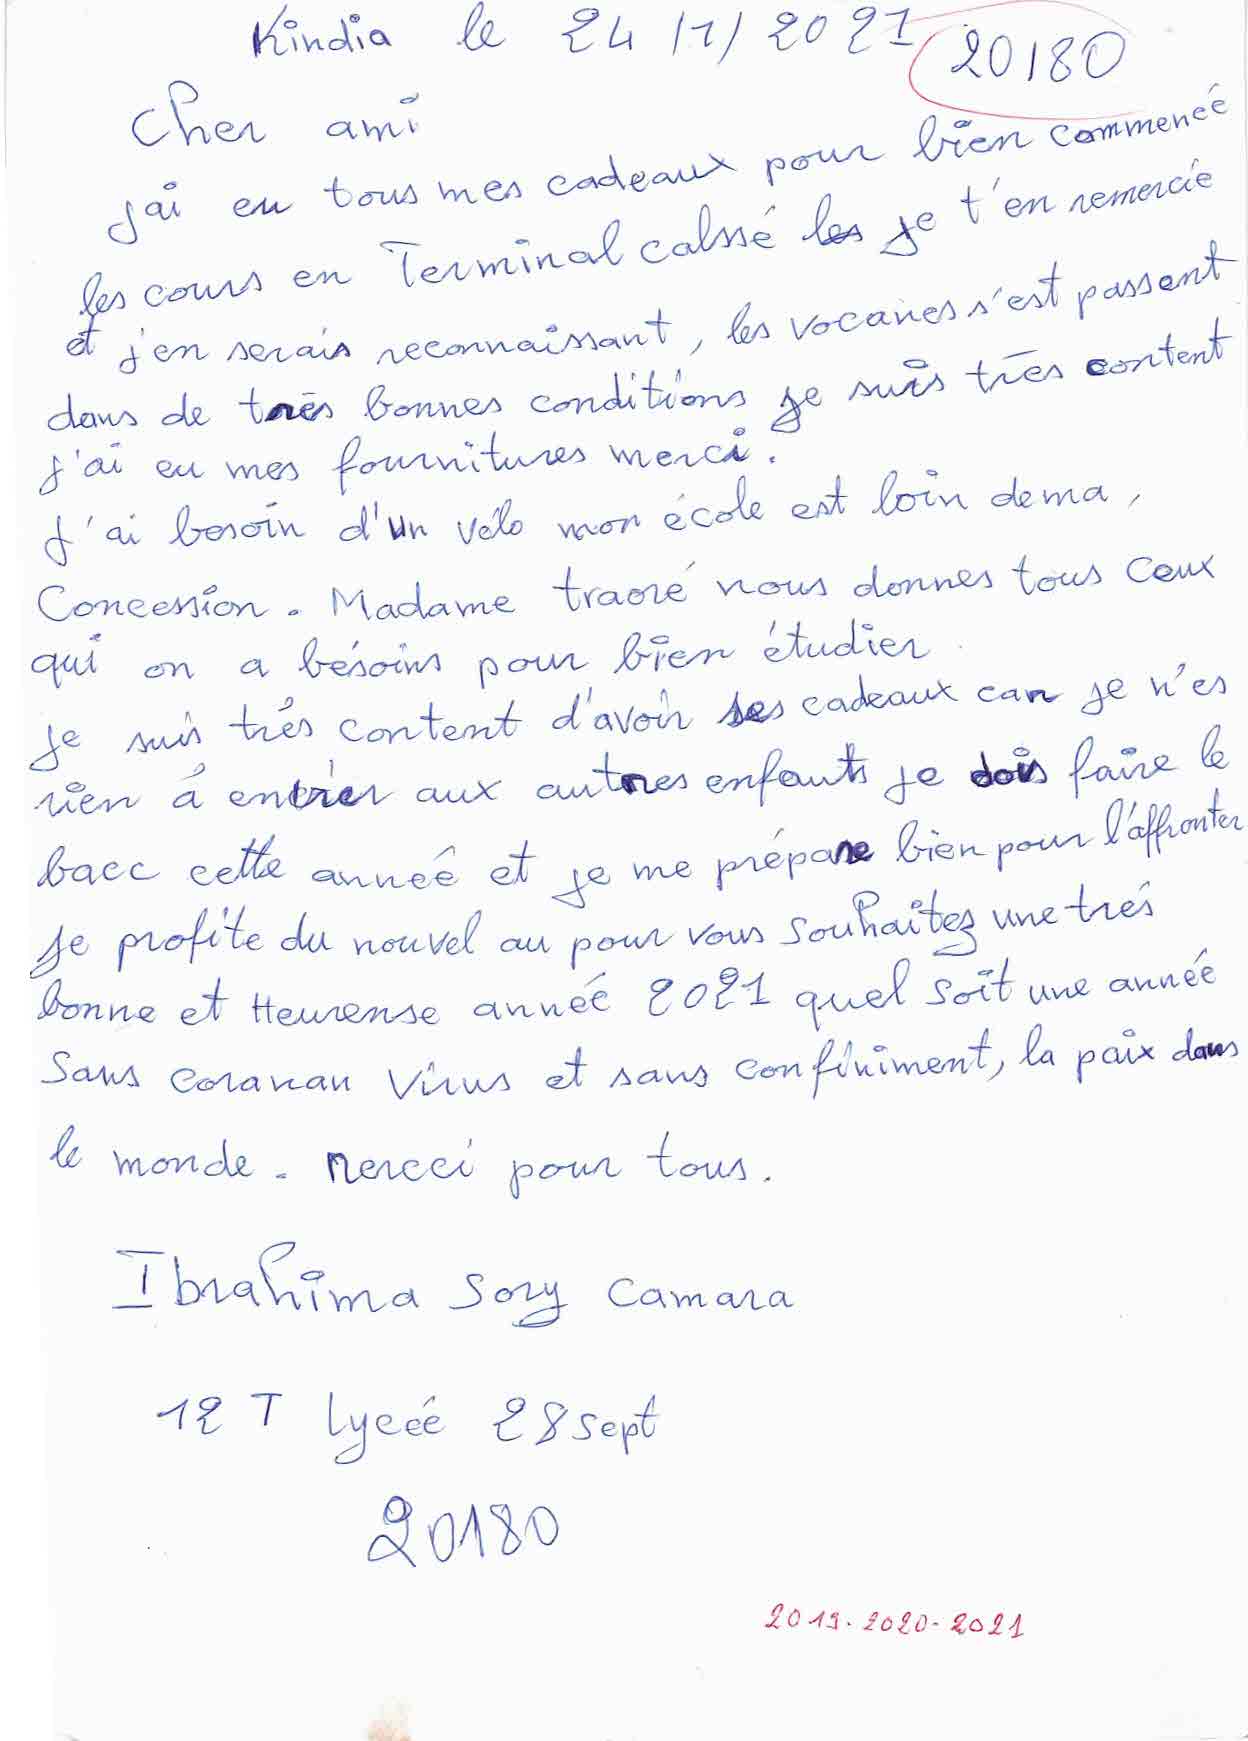 Kindia le 24/1/2021
20180
Cher ami
j'ai eu tous mes cadeaux pour bien commencé
les cours en Terminal calssé les je t'en remercie
et j'en serais reconnaissant, les vocanes s'est passent
dans de très bonnes conditions je suis très content
j'ai eu mes fournitures merci.
J'ai besoin d'un vélo mon école est loin de ma,
Concession. Madame traoré nous donnes tous ceux
qui on a bésoins pour bien étudier.
je suis trés content d'avoir ses cadeaux car je n'es
rien á envier aux autres enfants je dois faire le
bacc cette année et je me prépare bien pour l'affronter
je profite du nouvel an pour vous souhaitez une trés
bonne et Heureuse année 2021 quel soit une année
Sans coranan Virus et sans confiniment, la paix dans
le monde. Mercci pour tous.
Ibrahima Sory Camara
12 T Lyceé 28 sept
20180
2019-2020-2021